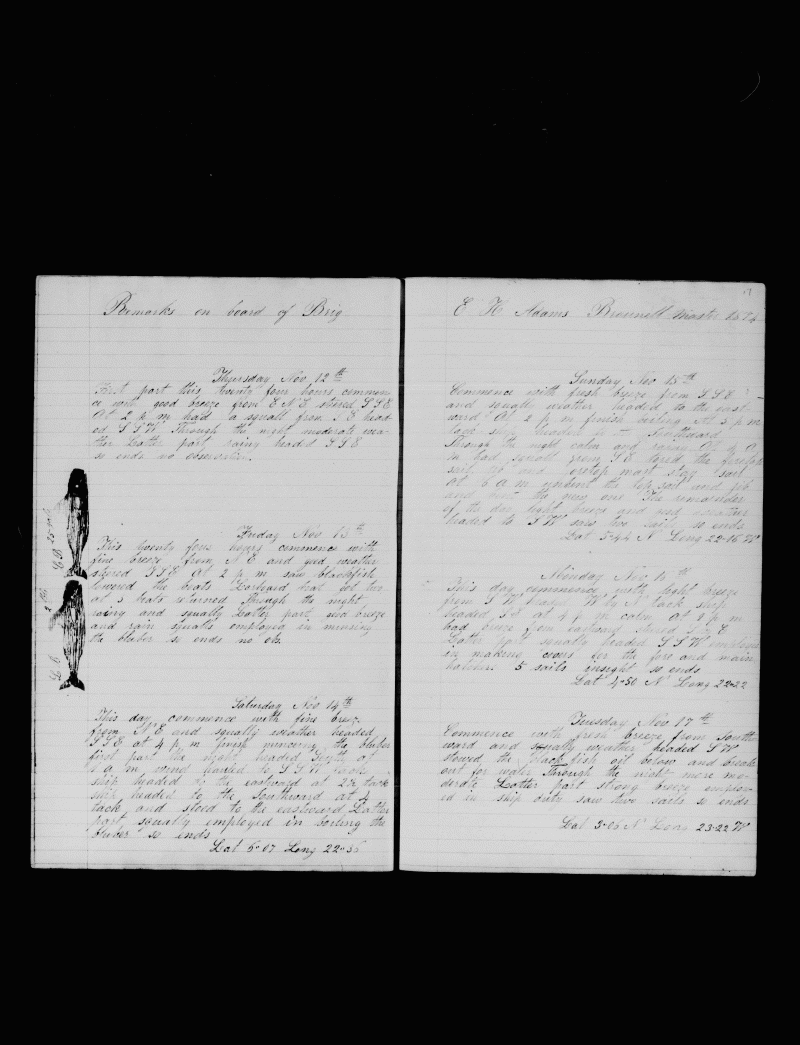 Remarks on board of Brig
Thursday Nov 12th
First part this twenty four hours commen
ce with good breeze from E N E stered S S E
At 2 p m had a squall from S E head
ed S S W Through the night moderate wea
ther Latter part rainy headed S S E
so ends no observation.
Friday Nov 13th
This twenty four hours commence with
fine breeze from N E and good weather
stered S S E At 2 p m saw blackfish
lowered the boats Larboard boat got two
at 5 boats returned Through the night
rainy and squally Latter part good breeze
and rain squalls employed in mincing
the bluber so ends no ob.
L B 25 gals
L B
Saturday Nov 14th
This day commence with fine breeze
from N E and squally weather headed
S S E at 4 p m finish mincing the bluber
first part the night headed South at
1 A m wind hauled to S S W tack
ship headed to the eastward at 2½ tack
ship headed to the Southward at 4
tack and stood to the eastward Latter
part squally employed in boiling the
bluber so ends
Lat 5-07 Long 22-35
E H Adams Brownell Master 1874
Sunday Nov 15th
Commence with fresh breeze from S S E
and squally weather headed to the east
ward At 2 p m finish boiling At 5 p m
tack ship headed to Southward
Through the night calm and rainy At 4 A
m had squall from S E furled the foretop
sail jib and foretop mast stay sail
at 6 A m unbent the top sail and jib
and bent the new one The remainder
of the day light breeze and good weather
headed to S W saw two sails so ends
Lat 5-44 N Long 22-16 W
Monday Nov 16th
This day commence with light breeze
from S W headed W by N tack ship
headed S E at 4 p m calm at 8 p m
had breeze from eastward stered S S E
Latter part squally headed S S W employed
in making covers for the fore and main
hatches 5 sails insight so ends
Lat 4-50 N Long 22-22
Tuesday Nov 17th
Commence with fresh breeze from South
ward and squally weather headed S W
stowed the black fish oil below and break
out for water Through the night more mo-
derate Latter part strong breeze employ-
ed in ship duty saw two sails so ends
Lat 3-06 N Long 23-22 W